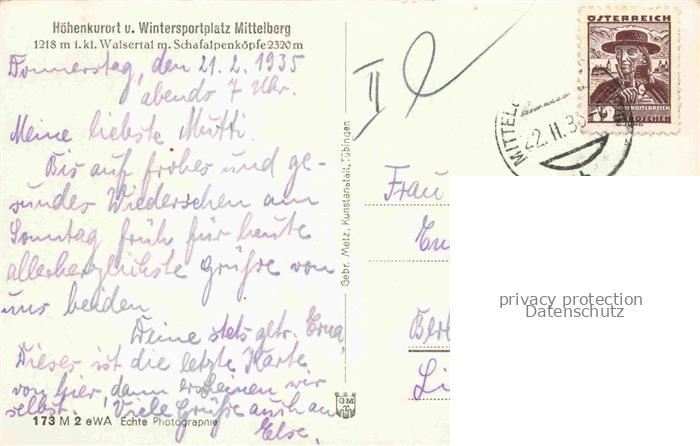 Höhenkurort u. Wintersportplatz Mittelberg
1218 m i. kl. Walsertal m. Schafalpenköpfe 2320 m
Donnerstag, den 21. 2. 1935
abends 7 Uhr.
Meine liebste Mutti.
Bis auf frohes und ge-
sundes Wiedersehen am
Sonntag früh für heute
allerherzlichste Grüße von
uns beiden
Deine stets getr. Erna.
Dieser ist die letzte Karte
von hier, dann erscheinen wir
selbst. Viele Grüße auch an
Else.
173 M 2 eWA Echte Photographie
Gebr. Metz, Kunstanstalt, Tübingen
GM
II
ÖSTERREICH
GROSCHEN
MITTEL
22. II. 35
Frau
Ber
Li
privacy protection
Datenschutz